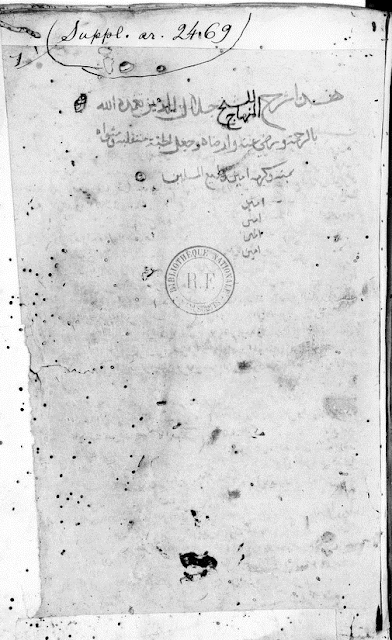 (Suppl. ar. 2469)
1
هذا شرح المنهاج للشيخ جلال الدين تغمده الله
بالرحمة ورضي عنه وارضاه وجعل الجنة متقلبه ومثواه
بمنه وكرمه امين وجميع المسلمين
امين
امين
امين
امين
BIBLIOTHÈQUE NATIONALE
R.F.